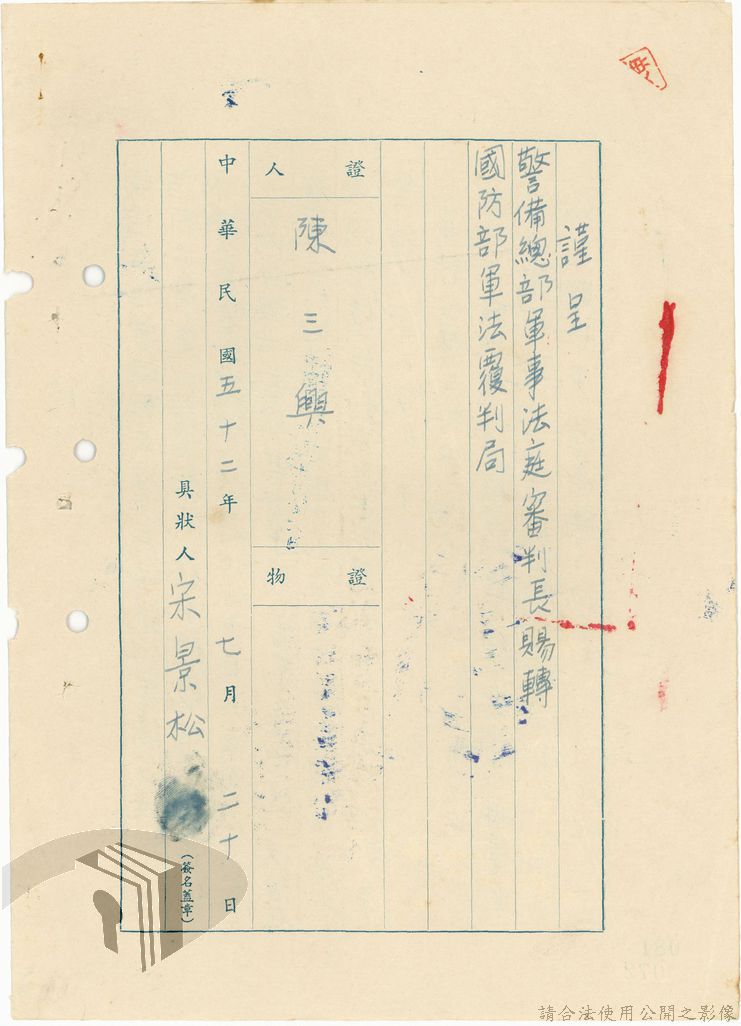 謹呈
警備總部軍事法庭審判長賜轉
國防部軍法覆判局
證人
陳三興
證物
中華民國五十二年七月二十日
具狀人宋景松
（簽名蓋章）
請合法使用公開之影像